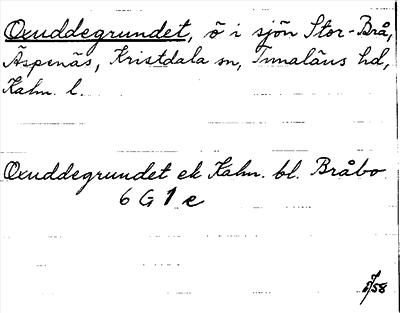 Oxuddegrundet, ö i sjön Stor-Brå,
Äspenäs, Kristdala sn, Tunaläns hd,
Kalm. l.
Oxuddegrundet ek Kalm. bl. Bråbo
6 G 1 e
/58